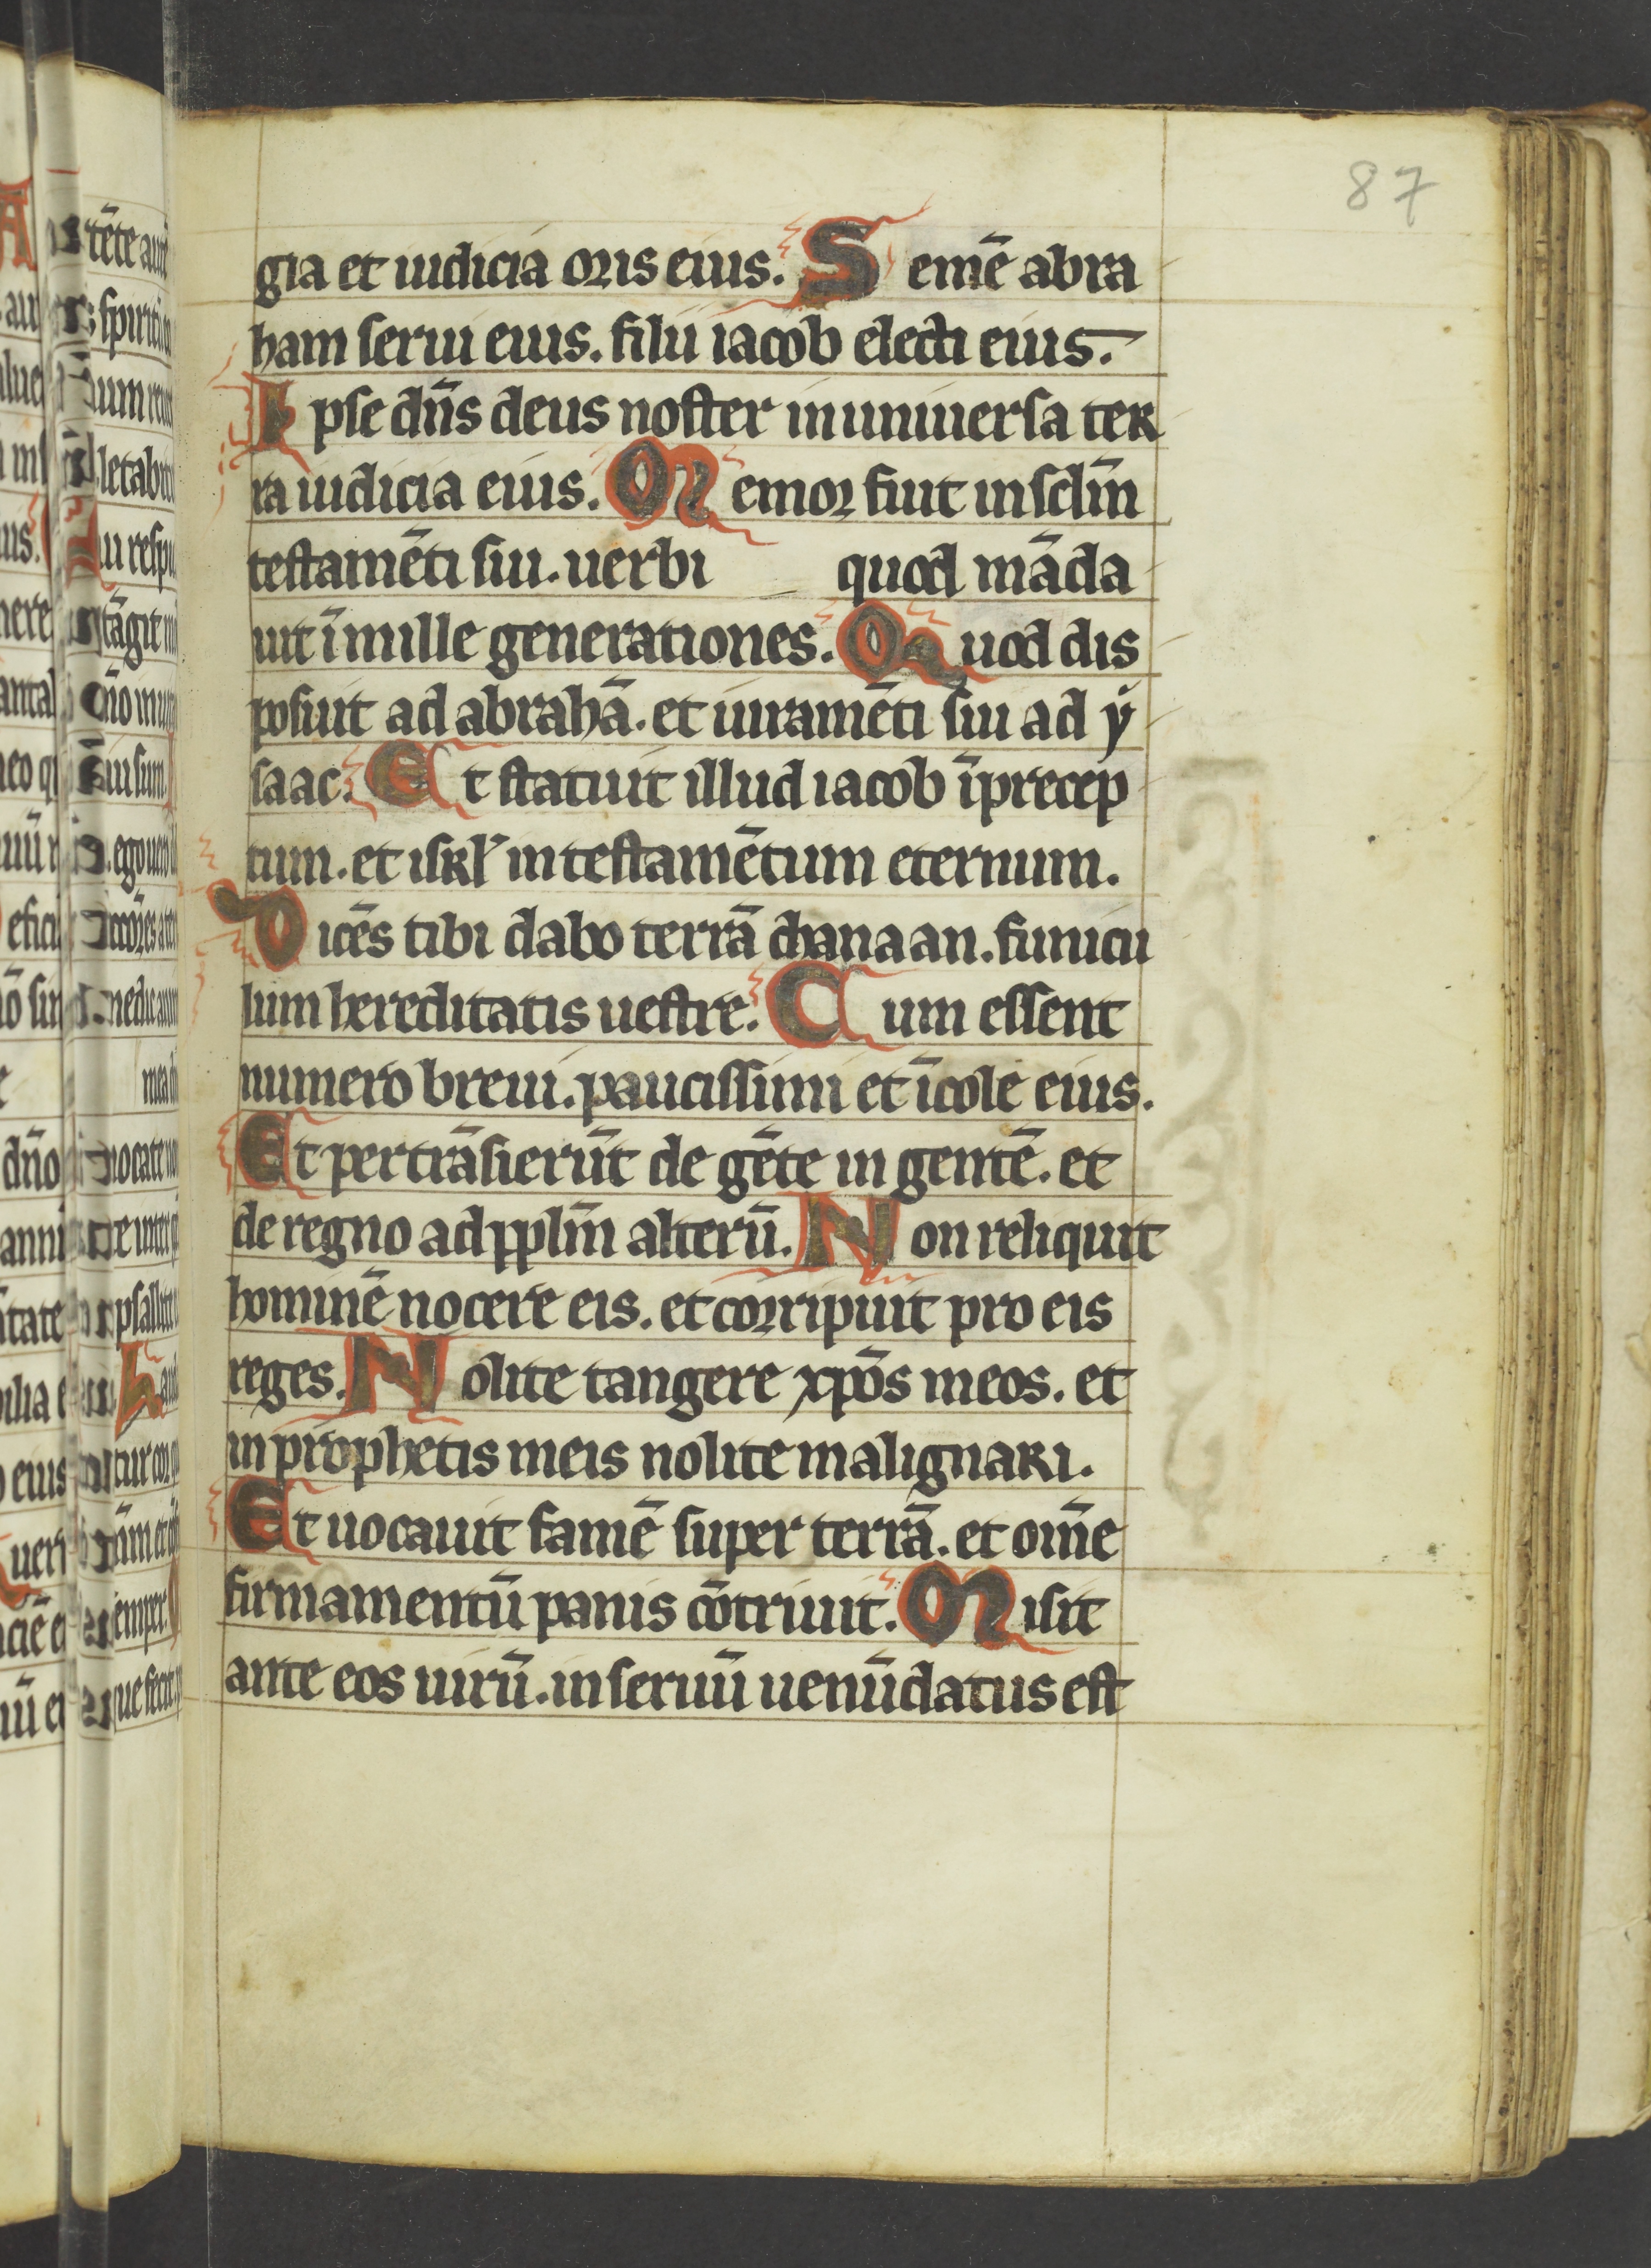 87
gia et iudicia oris eius. Semē abra
ham serui eius. filii iacob electi eius.
Ipse dn̄s deus noster in uniuersa ter
ra iudicia eius. Memor fuit in sc̄lm
testamēti sui. uerbi quod māda
uit ī mille generationes. Quod dis
posuit ad abrahā. et iuramēti sui ad ẏ
saac. Et statuit illud iacob ī precep
tum. et isrl̓ in testamētum eternum.
Dicēs tibi dabo terrā chanaan. funicu
lum hereditatis uestre. Cum essent
numero breui. paucissimi et īcole eius.
Et pertrāsierūt de gēte in gentē. et
de regno ad pplm̄ alterū. Non reliquit
hominē nocere eis. et corripuit pro eis
reges. Nolite tangere xp̄os meos. et
in prophetis meis nolite malignari.
Et uocauit famē super terrā. et om̄e
firmamentū panis cōtriuit. Misit
ante eos uirū. in seruū uenūdatus est